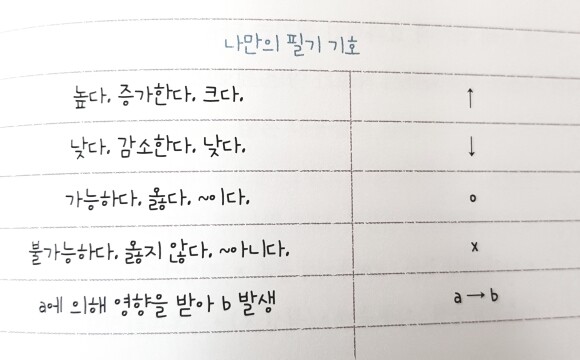 나만의 필기 기호
높다. 증가한다. 크다. ↑
낮다. 감소한다. 낮다. ↓
가능하다. 옳다. ~이다. o
불가능하다. 옳지 않다. ~아니다. x
a에 의해 영향을 받아 b 발생 a → b